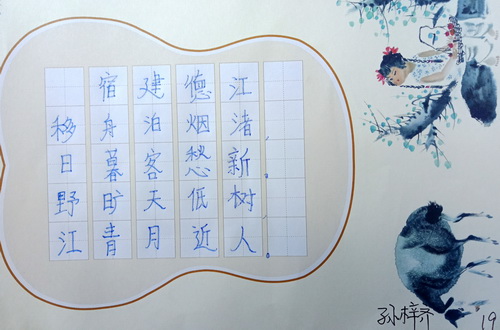 宿建德江
移舟泊烟渚，
日暮客愁新。
野旷天低树，
江青月近人。
孙梓齐 19